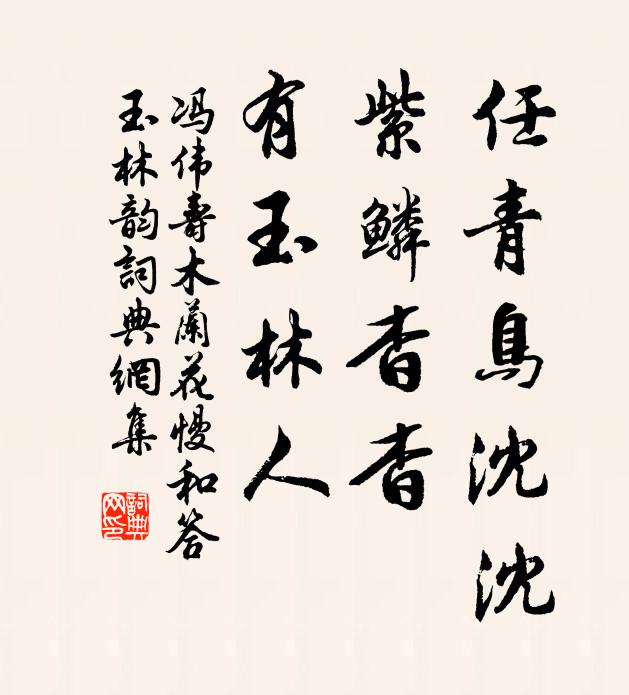 任青鳥沈沈
紫鱗杳杳
有玉林人
冯伟壽木蘭花慢和答
玉林韵詞典網集
詞典网印